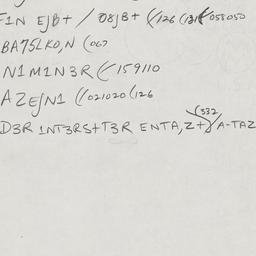 F1N EJB+ / 08JB+ (/126 (131/ 058050
BA75LK0,N (067
N1M1N3R (/159110
AZEJN1 (/021020 (126
(332
D3R 1NT3RS+T3R ENTA,Z+)/A-TAZ